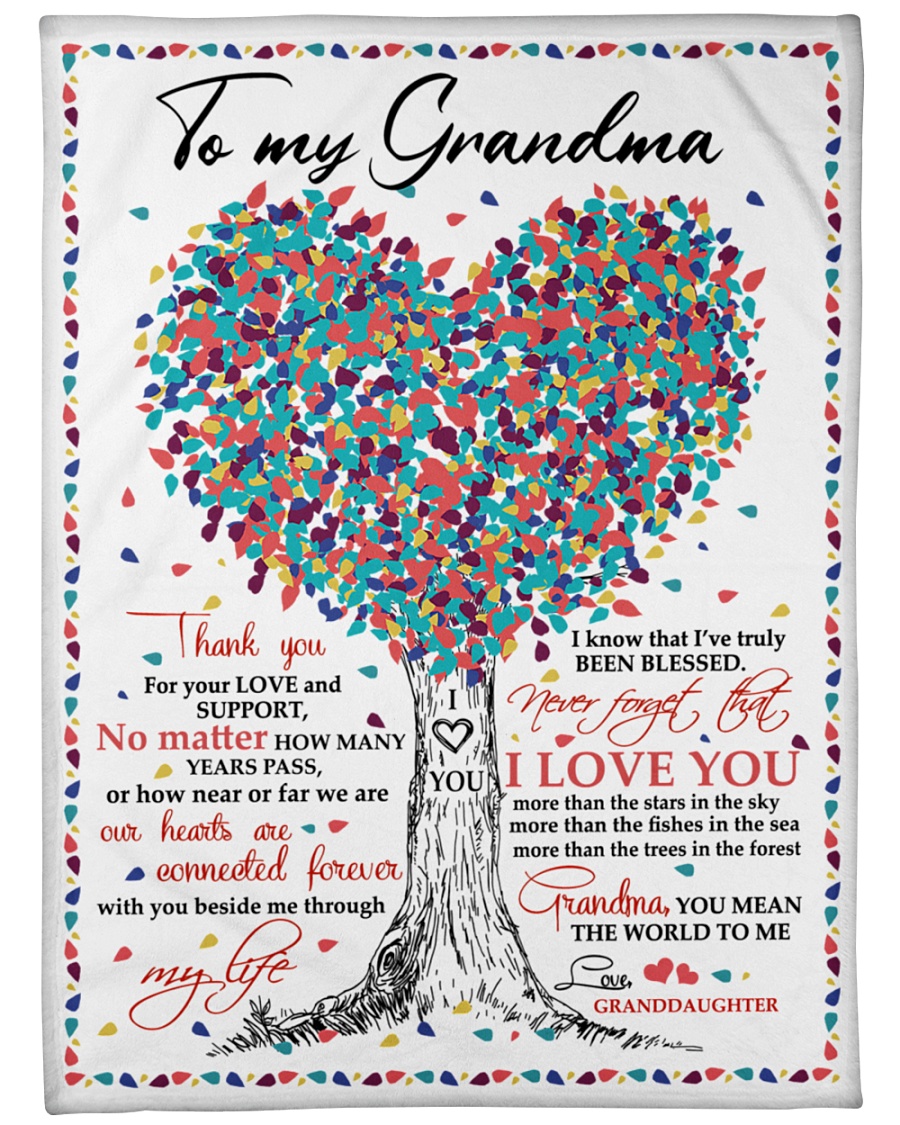 To my Grandma
Thank you
For your LOVE and
SUPPORT,
No matter HOW MANY
YEARS PASS,
or how near or far we are
our hearts are
connected forever
with you beside me through
my life
I
YOU
I know that I've truly
BEEN BLESSED.
Never forget that
I LOVE YOU
more than the stars in the sky
more than the fishes in the sea
more than the trees in the forest
Grandma, YOU MEAN
THE WORLD TO ME
Love,
GRANDDAUGHTER